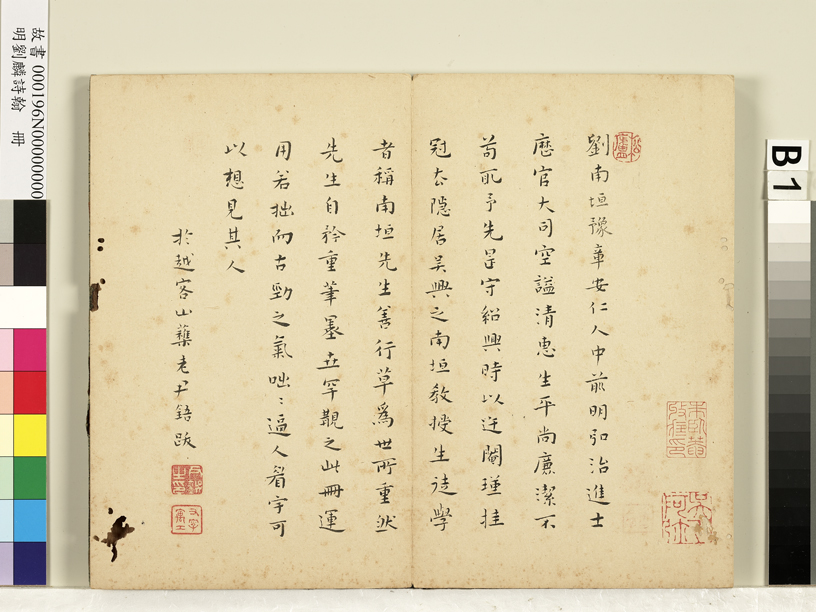 劉南垣豫章安仁人中前明弘治進士
歷官大司空謚清惠生平尚廉潔不
苟取予先是守紹興時以迕閹瑾挂
冠去隱居吳興之南垣教授生徒學
者稱南垣先生善行草為世所重然
先生自矜重筆墨故罕覯之此冊運
用若拙而古勁之氣咄〻逼人看字可
以想見其人
於越客山蘗老尹鋙跋
故書 000196N000000000
明劉麟詩翰 冊
B1